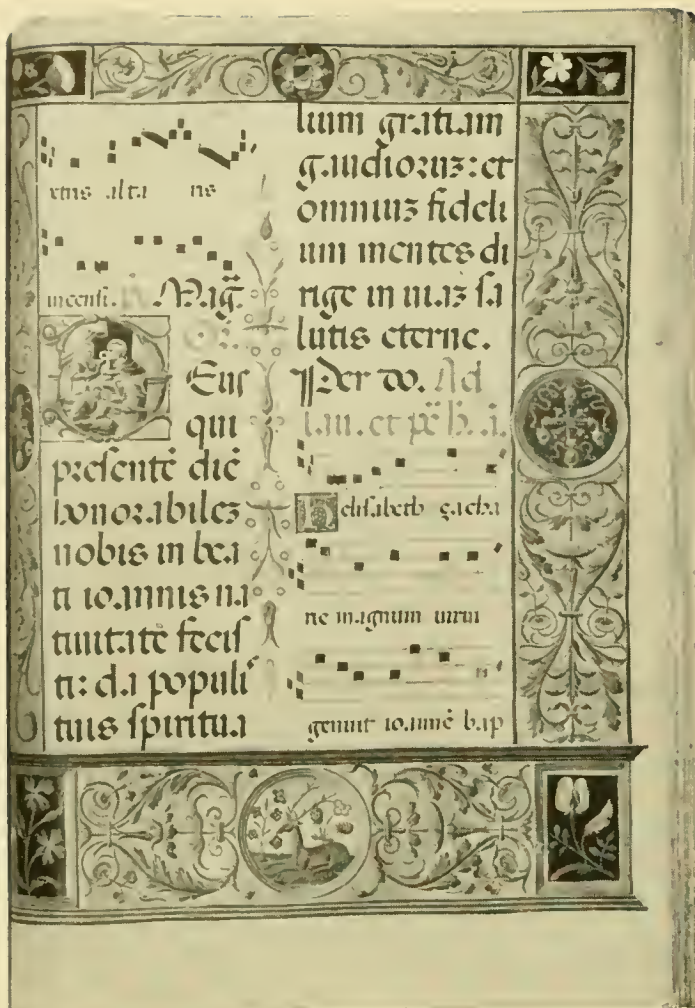 xtris alta ris
incensi. Mag̃.
Eus
qui
presentē diē
honorabilez
nobis in bea
ti ioannis na
tiuitatē fecis
ti: da populis
tuis spiritua
lium gratiam
gaudioruz: et
omniuz fideli
um mentes di
rige in uiaz sa
lutis eterne.
Per do. Ad
lau. et
Elisabeth zacha
rie magnum uirum
genuit ioannē bap